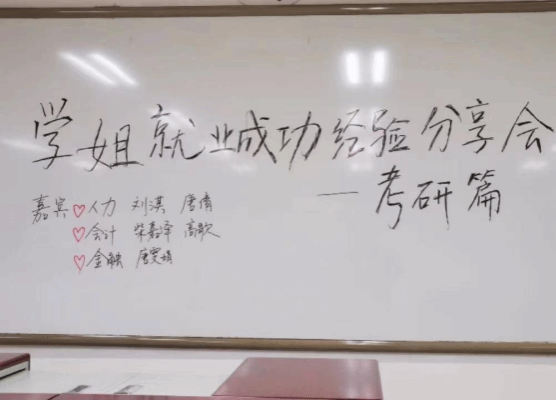 学姐就业成功经验分享会
—考研篇
嘉宾 ♡人力 刘淇 唐倩
♡会计 柴嘉泽 高歌
♡金融 唐雯婧